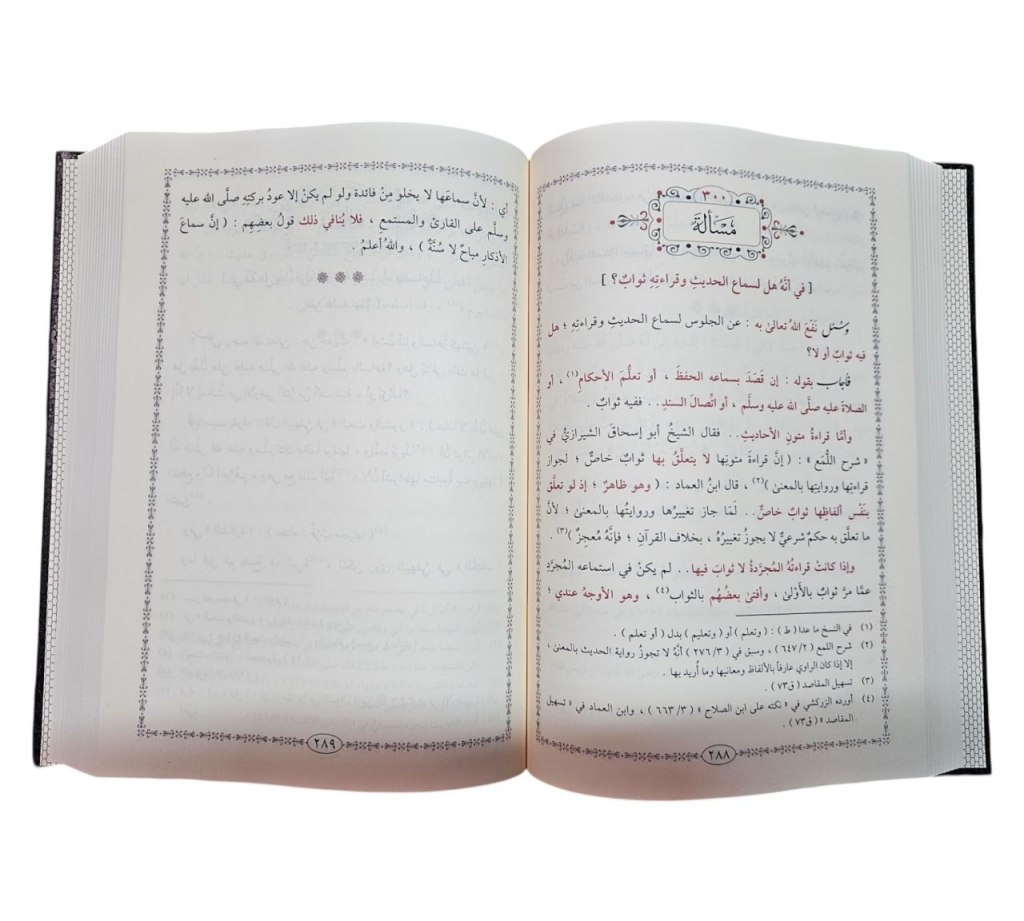 ٣٠٠
مَسْأَلَة
[ في أنَّهُ هل لسماعِ الحديثِ وقراءتِهِ ثوابٌ ؟ ]
وسُئل نَفَعَ اللهُ تعالىٰ به : عن الجلوس لسماعِ الحديثِ وقراءتِهِ ؛ هل
فيه ثوابٌ أو لا؟
فأجاب بقوله : إن قَصَدَ بسماعه الحفظَ ، أو تعلُّمَ الأحكامِ(١) ، أو
الصلاةَ عليه صلَّى الله عليه وسلَّم ، أو اتِّصالَ السندِ . . ففيه ثوابٌ .
وأمَّا قراءةُ متونِ الأحاديثِ . . فقال الشيخُ أبو إسحاقَ الشيرازيُّ في
« شرح اللُّمَع » : ( إنَّ قراءةَ متونِها لا يتعلَّقُ بها ثوابٌ خاصٌّ ؛ لجواز
قراءتِها وروايتِها بالمعنىٰ )(٢) ، قال ابنُ العماد : ( وهو ظاهرٌ ؛ إذ لو تعلَّق
بنَفْسِ ألفاظِها ثوابٌ خاصٌّ . . لَمَا جازَ تغييرُها وروايتُها بالمعنىٰ ؛ لأنَّ
ما تعلَّق به حكمٌ شرعيٌّ لا يجوزُ تغييرُهُ ، بخلاف القرآنِ ؛ فإنَّهُ مُعجِزٌ )(٣) .
وإذا كانتْ قراءتُهُ المُجرَّدةُ لا ثوابَ فيها . . لم يكنْ في استماعه المُجرَّدِ
عمَّا مرَّ ثوابٌ بالأَوْلىٰ ، وأفتىٰ بعضُهُم بالثواب(٤) ، وهو الأوجهُ عندي ؛
(١) في النسخ ما عدا ( ط ) : ( وتعلم ) أو ( وتعليم ) بدل ( أو تعلم ) .
(٢) شرح اللمع ( ٦٤٧/٢ ) ، وسبق في ( ٢٧٦/٣ ) أنَّهُ لا تجوزُ رواية الحديث بالمعنىٰ ؛
إلا إذا كان الراوي عارفاً بالألفاظ ومعانيها وما أُريد بها .
(٣) تسهيل المقاصد ( ق٧٣ ) .
(٤) أورده الزركشي في « نكته على ابن الصلاح » ( ٦٦٣/٣ ) ، وابن العماد في « تسهيل
المقاصد » ( ق٧٣ ) .
٢٨٨
أي : لأنَّ سماعَها لا يخلو مِنْ فائدة ولو لم يكنْ إلا عودُ بركتِهِ صلَّى الله عليه
وسلَّم على القارئ والمستمعِ ، فلا يُنافي ذلك قولُ بعضِهِم : ( إنَّ سماعَ
الأذكارِ مباحٌ لا سُنَّةٌ ) ، واللهُ أعلمُ .
٢٨٩